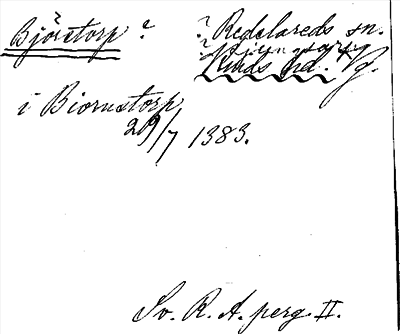 Björstorp ? ? Redslareds sn.
? Ljungsarps
Kinds hd. Vg.
i Biornstorp
29/7 1383.
Sv. R. A. perg II.